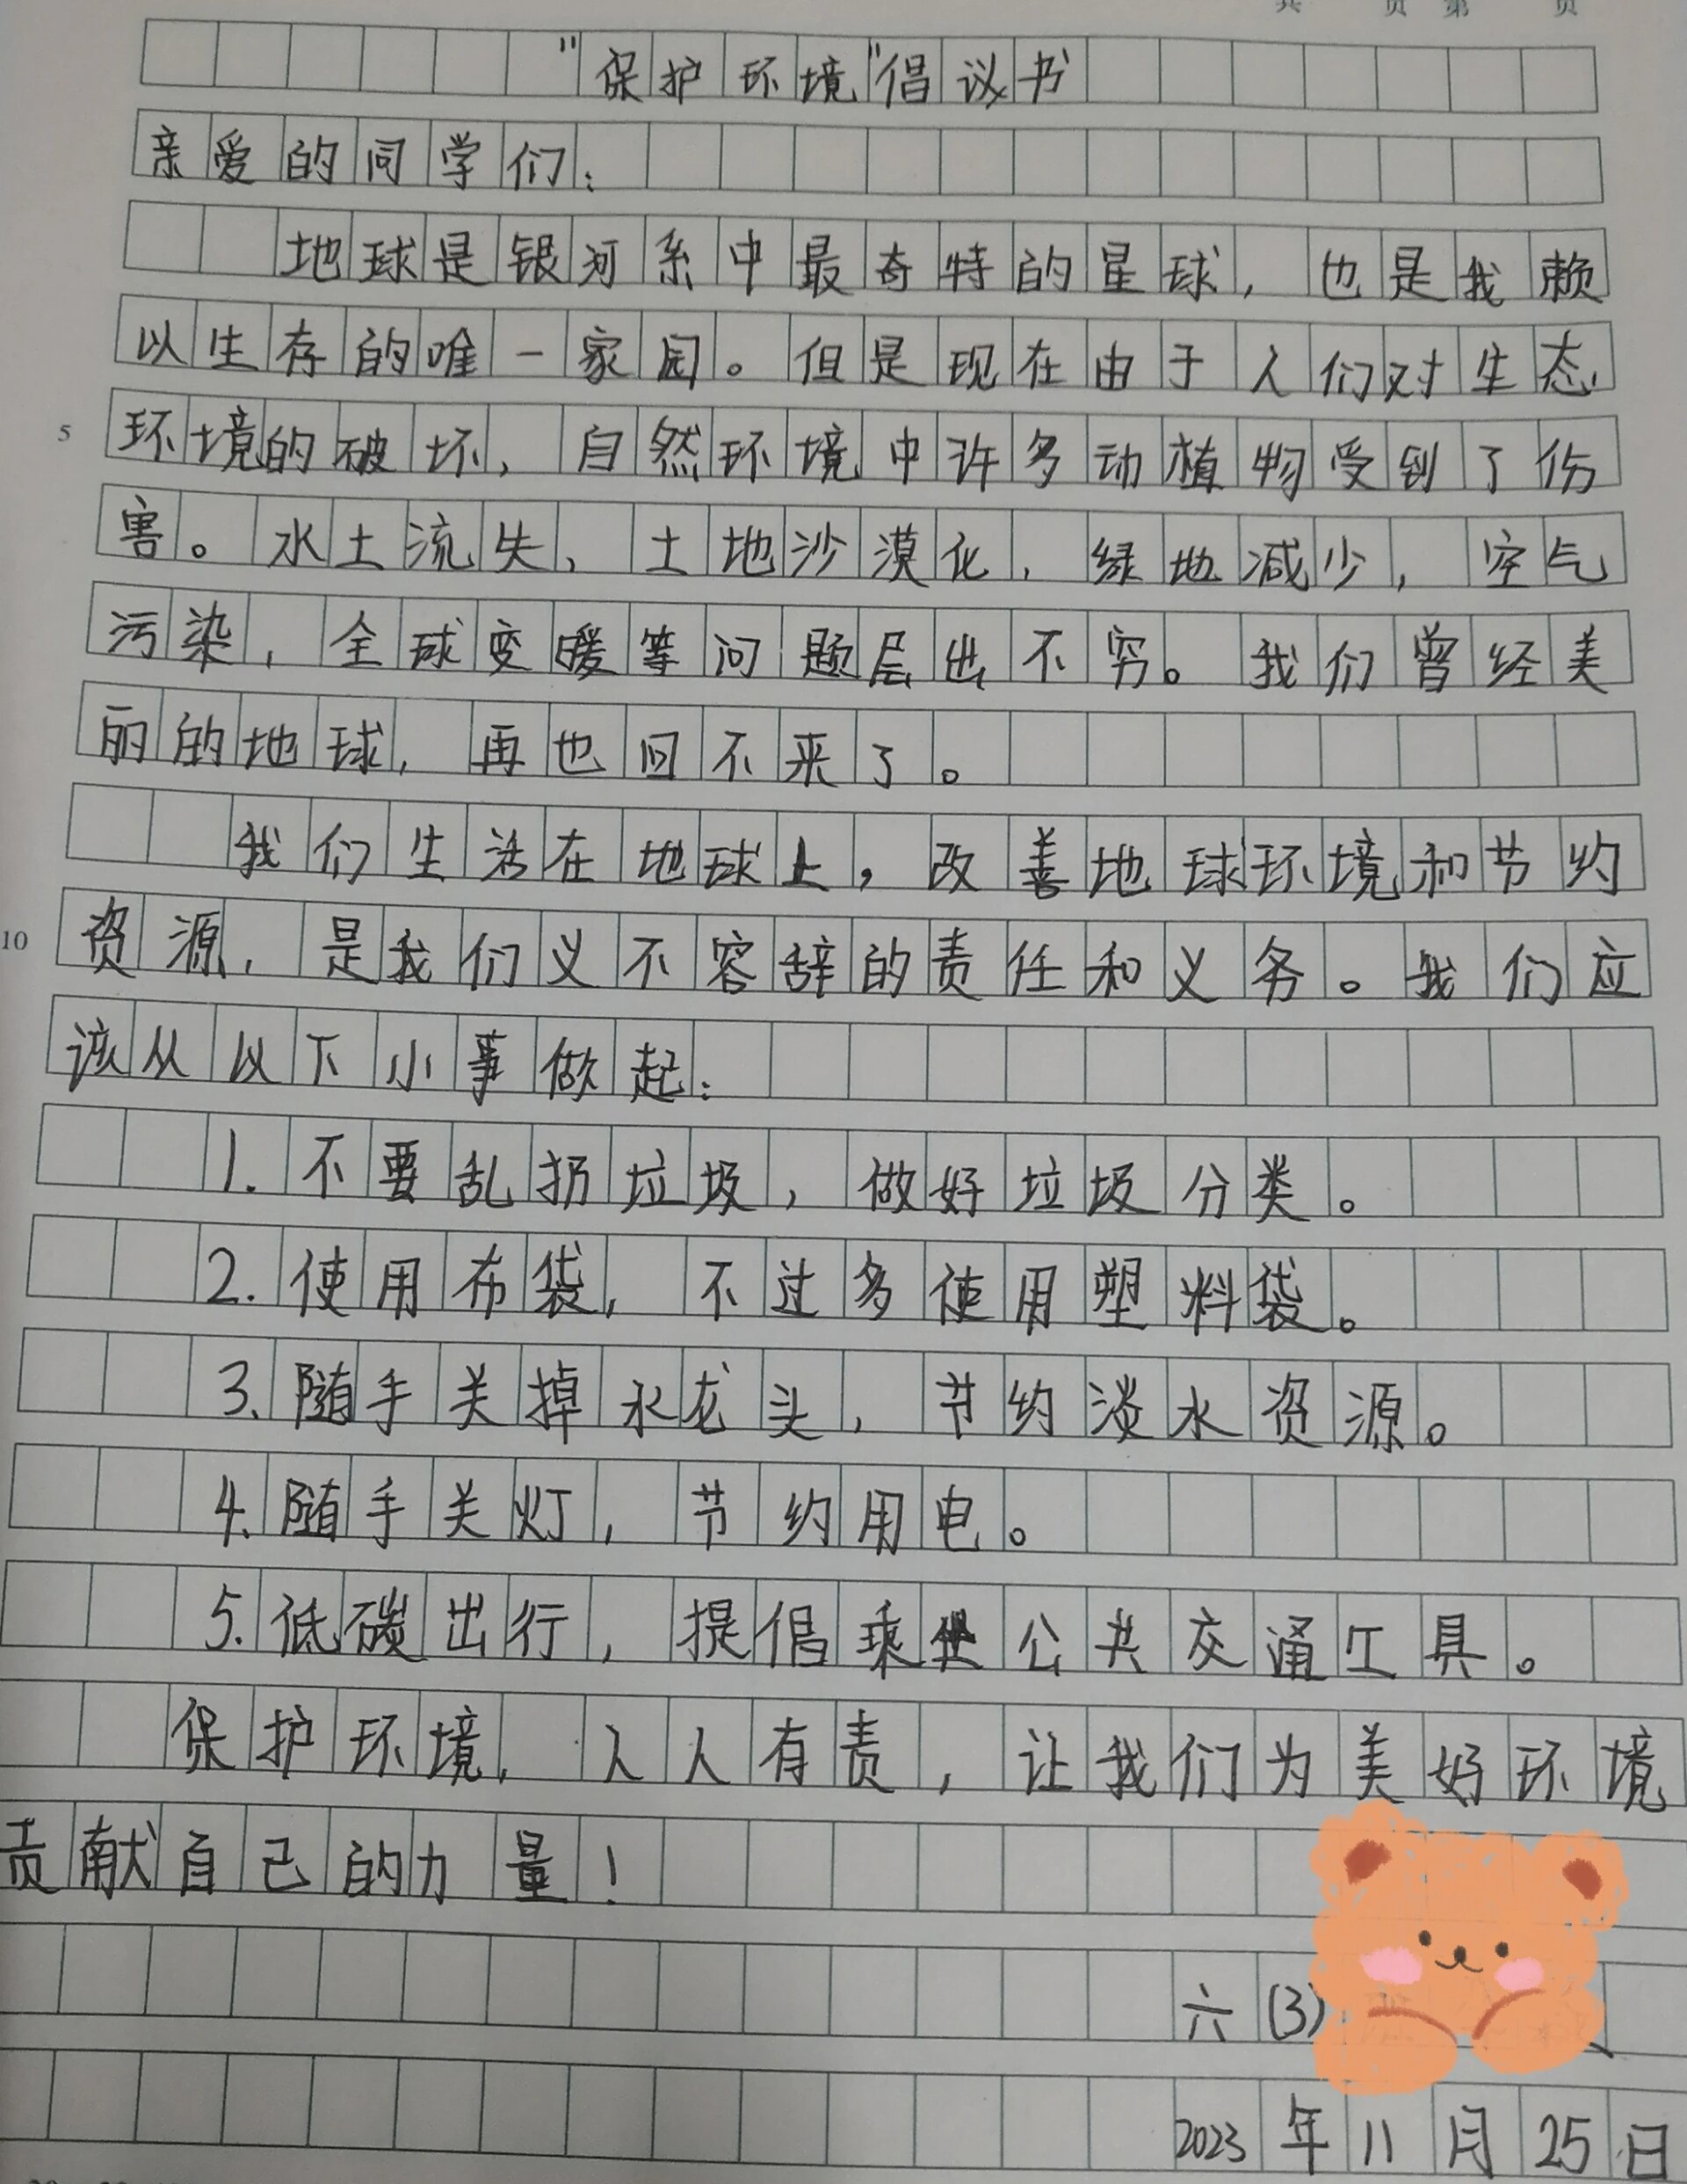 共 页 第 页
"保护环境"倡议书
亲爱的同学们:
地球是银河系中最奇特的星球,也是我赖
以生存的唯一家园。但是现在由于人们对生态
5
环境的破坏,自然环境中许多动植物受到了伤
害。水土流失、土地沙漠化,绿地减少,空气
污染,全球变暖等问题层出不穷。我们曾经美
丽的地球,再也回不来了。
我们生活在地球上,改善地球环境和节约
10
资源,是我们义不容辞的责任和义务。我们应
该从以下小事做起:
1.不要乱扔垃圾,做好垃圾分类。
2.使用布袋,不过多使用塑料袋。
3.随手关掉水龙头,节约淡水资源。
4.随手关灯,节约用电。
5.低碳出行,提倡乘坐公共交通工具。
保护环境,人人有责,让我们为美好环境
贡献自己的力量!
六(3)
2023年11月25日